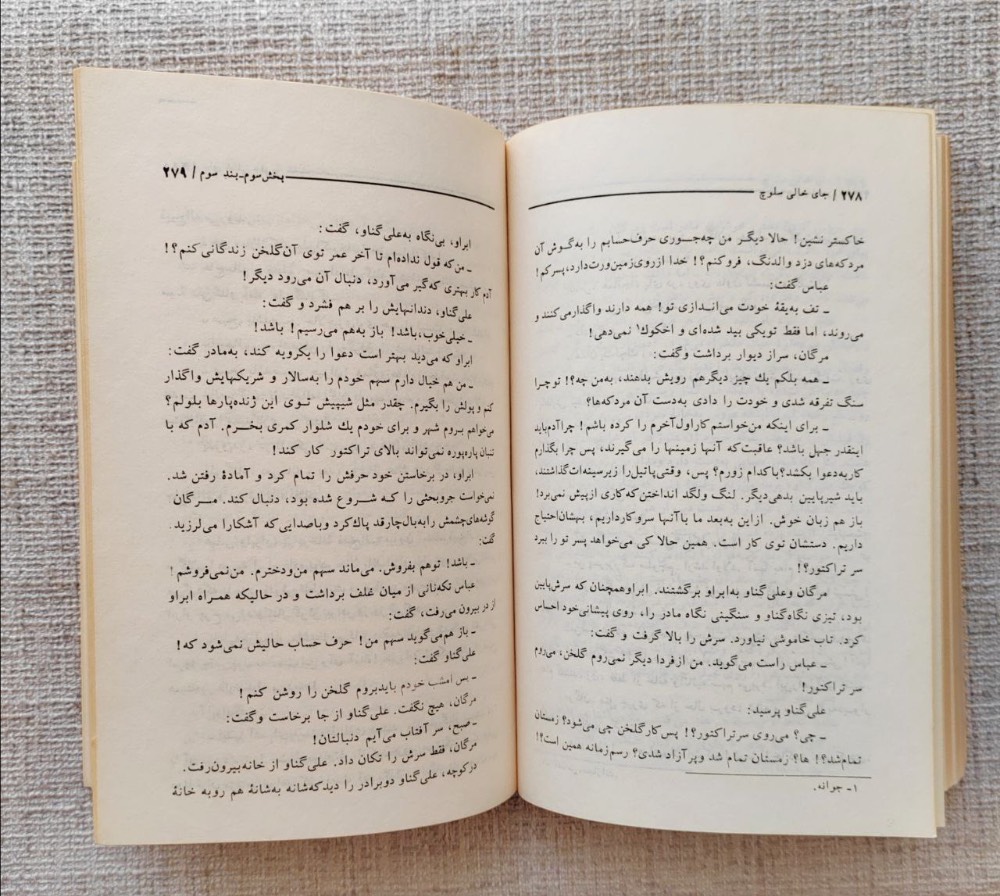 ۲۷۸ / جای خالی سلوچ
خاکستر نشین! حالا دیگر من چه‌جوری حرف‌حسابم را به‌گوش آن
مردکه‌های دزد والدنگ، فروکنم؟! خدا ازروی‌زمین‌ورت‌دارد، پسرکم!
عباس گفت:
ـ تف به‌یقهٔ خودت می‌اندازی تو! همه دارند واگذارمی‌کنند و
می‌روند، اما فقط تویکی بید شده‌ای و اخکوک۱ نمی‌دهی!
مرگان، سراز دیوار برداشت وگفت:
ـ همه بلکم یك چیز دیگرهم رویش بدهند، به‌من چه؟! توچرا
سنگ تفرقه شدی و خودت را دادی به‌دست آن مردکه‌ها؟
ـ برای اینکه من‌خواستم کاراول‌آخرم را کرده باشم! چراآدم‌باید
اینقدر جهل باشد؟ عاقبت‌که آنها زمینها را می‌گیرند، پس چرا بگذارم
کاربه‌دعوا بکشد؟باکدام زورم؟ پس، وقتی‌پاتیل‌را زیرسینه‌ات‌گذاشتند،
باید شیرپایین بدهی‌دیگر. لنگ ولگد انداختن‌که‌کاری ازپیش نمی‌برد!
باز هم زبان خوش. ازاین به‌بعد ما باآنها سروکارداریم، بهشان‌احتیاج
داریم. دستشان توی کار است. همین حالا کی می‌خواهد پسر تو را ببرد
سر تراکتور؟!
مرگان وعلی‌گناو به‌ابراو برگشتند. ابراوهمچنان که سرش‌پایین
بود، تیزی نگاه‌گناو و سنگینی نگاه مادر را، روی پیشانی‌خود احساس
کرد. تاب خاموشی نیاورد. سرش را بالا گرفت و گفت:
ـ عباس راست می‌گوید. من ازفردا دیگر نمی‌روم گلخن، می‌روم
سر تراکتور!
علی‌گناو پرسید:
ـ چی؟ می‌روی سرتراکتور؟! پس‌کارگلخن چی می‌شود؟ زمستان
تمام‌شد؟! ها؟ زمستان تمام شد وپرآزاد شدی؟ رسم‌زمانه همین است؟!
۱ـ جوانه.
بخش‌سوم‌ـ‌بند سوم / ۲۷۹
ابراو، بی‌نگاه به‌علی‌گناو، گفت:
ـ من‌که قول نداده‌ام تا آخر عمر توی آن‌گلخن زندگانی‌کنم؟!
آدم کار بهتری که‌گیر می‌آورد، دنبال آن می‌رود دیگر!
علی‌گناو، دندانهایش را بر هم فشرد و گفت:
ـ خیلی‌خوب، باشد! باز به‌هم می‌رسیم! باشد!
ابراو که می‌دید بهتر است دعوا را یکرویه کند، به‌مادر گفت:
ـ من هم خیال دارم سهم خودم را به‌سالار و شریکهایش واگذار
کنم وپولش را بگیرم. چقدر مثل شیپش توی این ژنده‌پارها بلولم؟
می‌خواهم بروم شهر و برای خودم یك شلوار کمری بخـرم. آدم که با
تنبان پاره‌پوره نمی‌تواند بالای تراکتور کار کند!
ابراو، در برخاستن خود حرفش را تمام کرد و آمادهٔ رفتن شد.
نمی‌خواست جروبحثی را کـه شـروع شده بود، دنبال کند. مـرگان
گوشه‌های‌چشمش رابه‌بال‌چارقد پاك‌کرد وباصدایی‌که آشکارا می‌لرزید.
گفت:
ـ باشد! توهم بفروش. می‌ماند سهم من‌ودخترم. من‌نمی‌فروشم!
عباس تکه‌نانی از میان غلف برداشت و در حالیکه همراه ابراو
از در بیرون می‌رفت، گفت:
ـ باز هم‌می‌گوید سهم من! حرف حساب حالیش نمی‌شود که!
علی‌گناو گفت:
ـ پس امشب خودم بایدبروم گلخن را روشن کنم!
مرگان، هیچ نگفت. علی‌گناو از جا برخاست وگفت:
ـ صبح، سر آفتاب می‌آیم دنبالتان!
مرگان، فقط سرش را تکان داد. علی‌گناو از خانه‌بیرون‌رفت.
درکوچه، علی‌گناو دوبرادر را دیدکه‌شانه به‌شانهٔ هم روبه خانهٔ